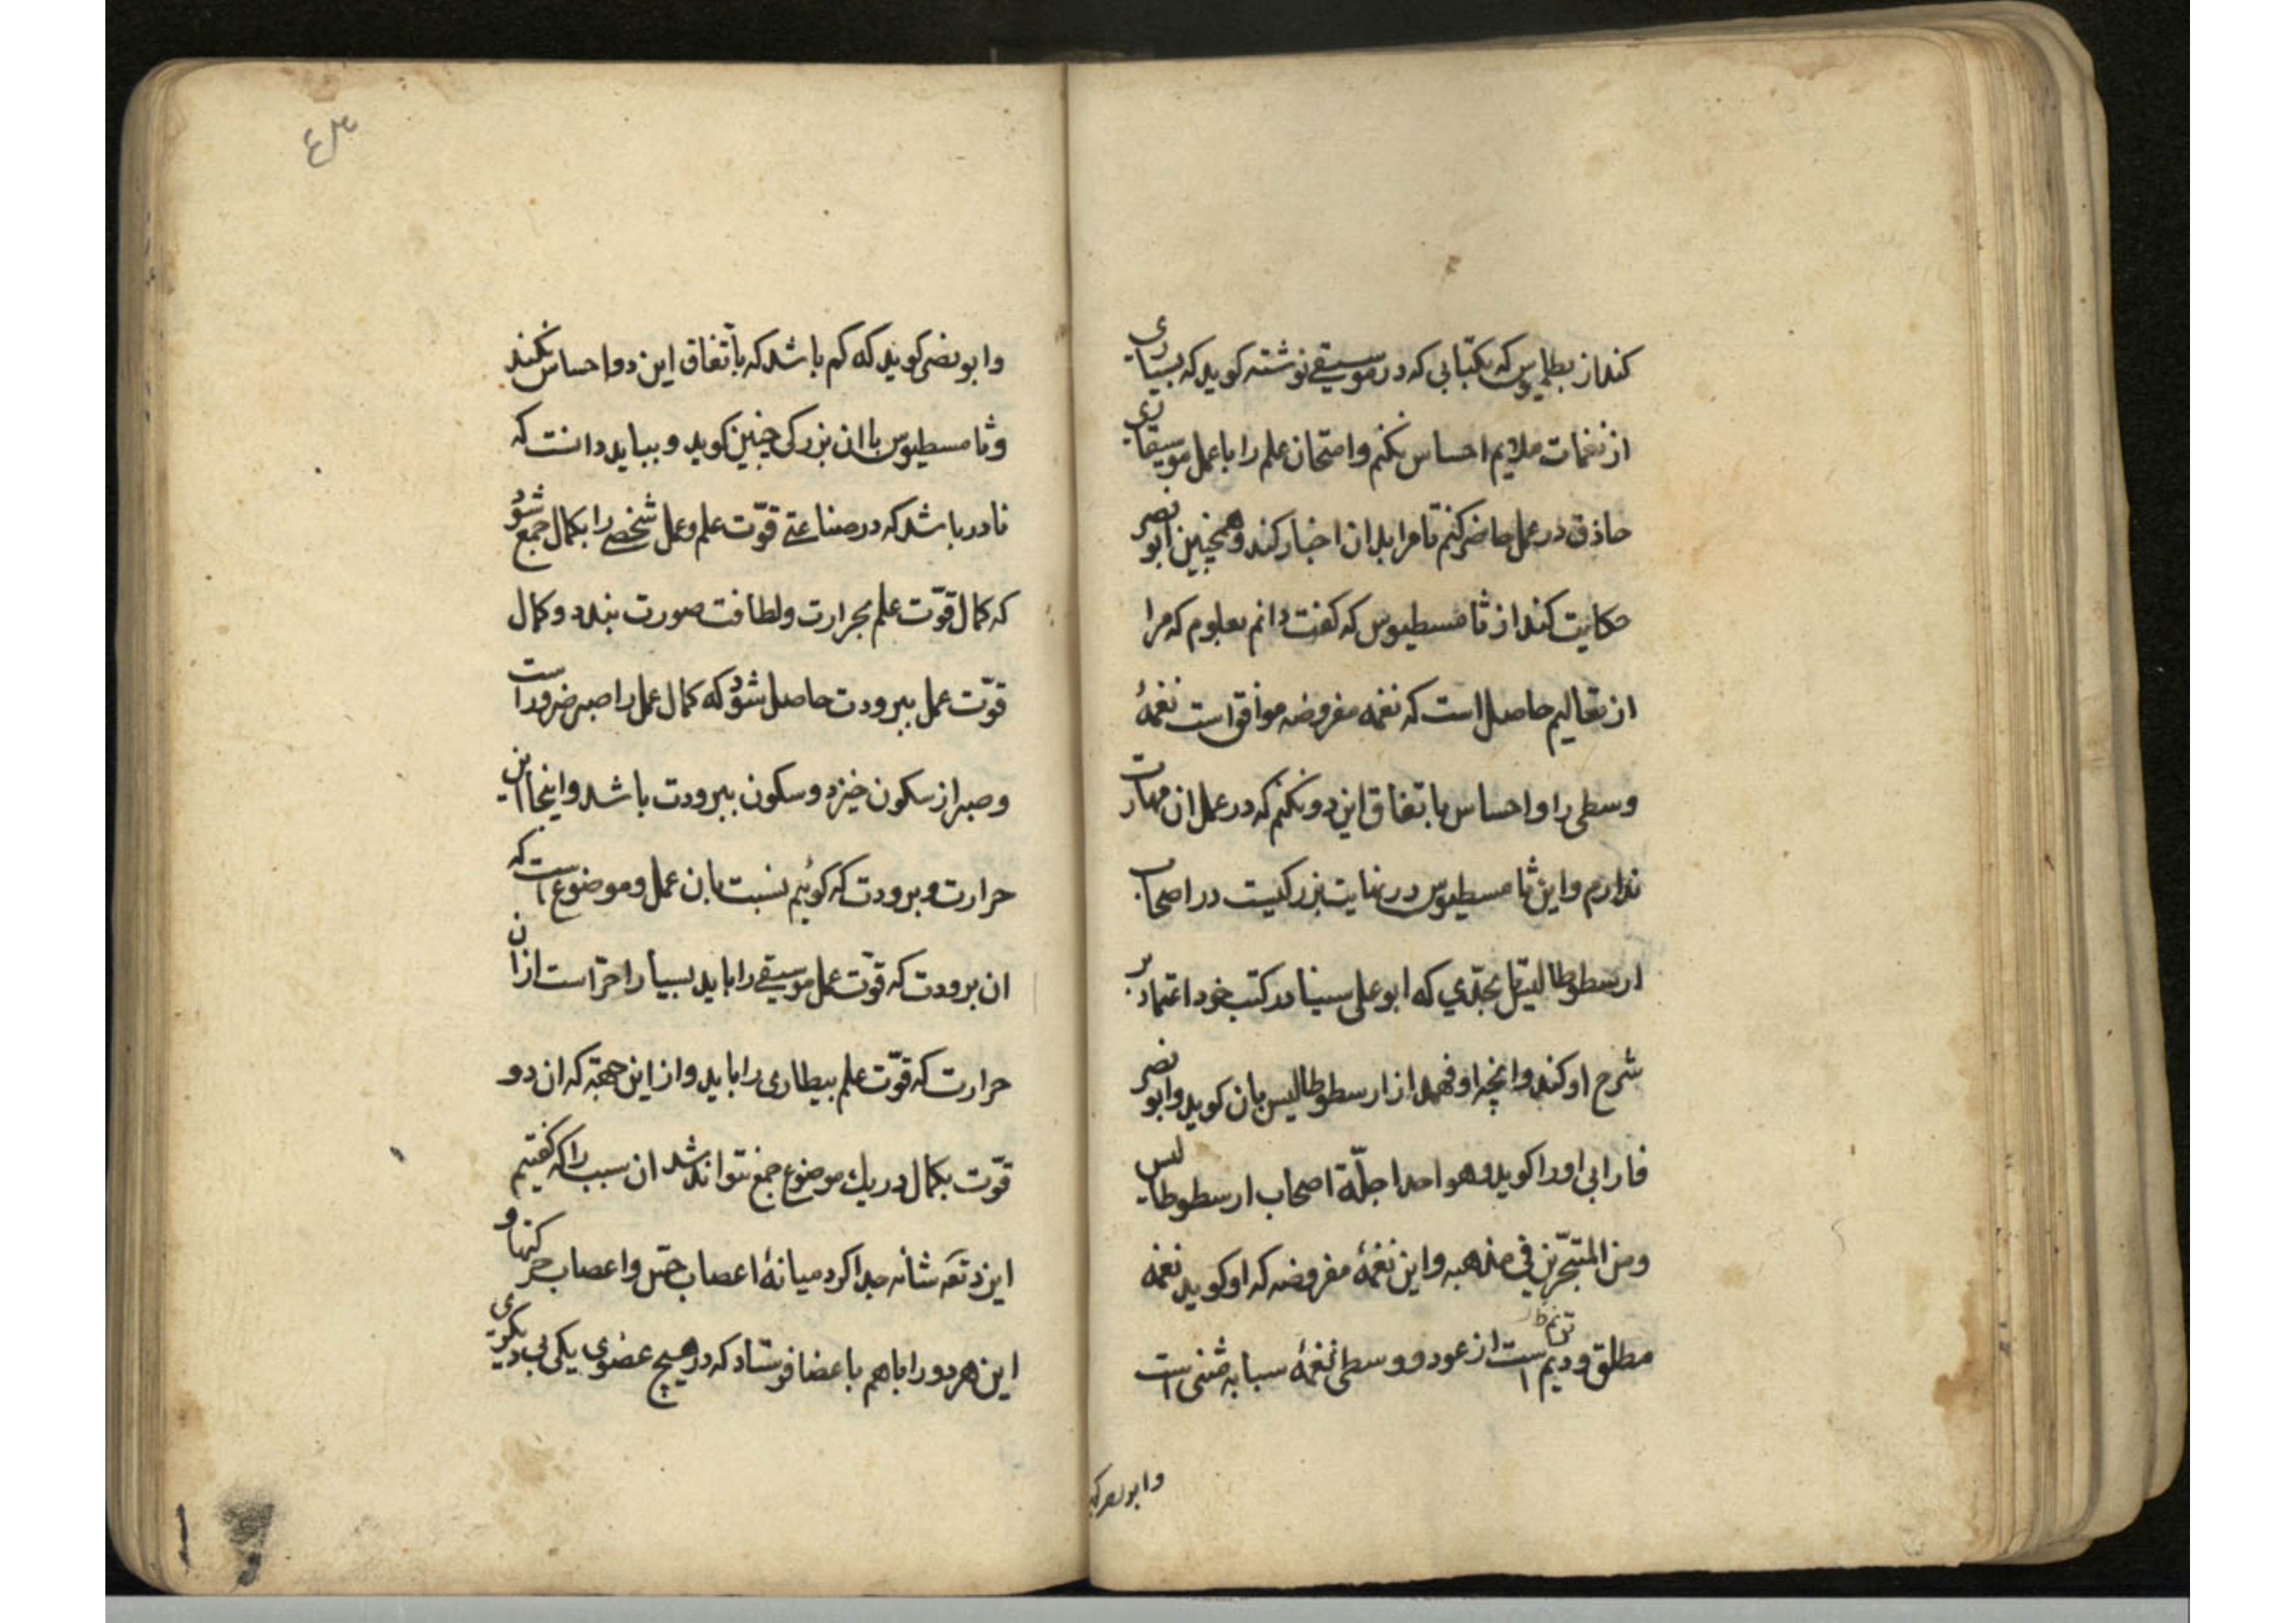 کند از بطلمیوس که بکتابی که در موسیقی نوشته کوید که بسیاری
از نغمات ملایم احساس نکنم و امتحان علم را با عمل موسیقاری
حاذق در عمل حاضر کنم تا مرا بدان اخبار کند و همچنین ابو نصر
حکایت کند از ثامسطیوس که کفت دانم بعلوم که مرا
از تعالیم حاصل است که نغمه مفروضه موافق است نغمهٔ
وسطی را و احساس باتفاق این دو نکنم که در عمل ان مهارت
ندارم و این ثامسطیوس در نهایت بزرکیست در اصحاب
ارسطوطالیس تا بحدّی که ابو علی سینا در کتب خود اعتماد بر
شرح او کند و انچه او فهمد از ارسطوطالیس بان کوید و ابو نصر
فارابی او را کوید و هو احد اجلّة اصحاب ارسطوطالیس
ومن المتبحّرین فی مذهبه و این نغمهٔ مفروضه که او کوید نغمه
مطلق و دیم است از عود و وسطی نغمهٔ سبابه مثنی است
وابونصر کو
و ابو نصر کوید که کم باشد که باتّفاق این دو احساس نکند
و ثامسطیوس با ان بزرکی چنین کوید و بباید دانست که
نادر باشد که در صناعتی قوّت علم و عمل شخصی را بکمال جمع شود
که کمال قوّت علم بحرارت و لطافت صورت بندد و کمال
قوّت عمل ببرودت حاصل شود که کمال عمل را صبر ضرور است
و صبر از سکون خیزد و سکون ببرودت باشد و اینجا این
حرارت و برودت که کوئیم نسبت بان عمل و موضوع است که
ان برودت که قوّت عمل موسیقی را باید بسیار احرّ است از ان
حرارت که قوّت علم بیطاری را باید و از این جهة که ان دو
قوّت بکمال در یک موضوع جمع نتواند شد ان سبب را که کفتیم
ایزد تعه شانه جدا کرد میانهٔ اعصاب حسّ و اعصاب حرکتها و
این هر دو را باهم باعضا فرستاد که در هیچ عضوی یکی بی دیکری